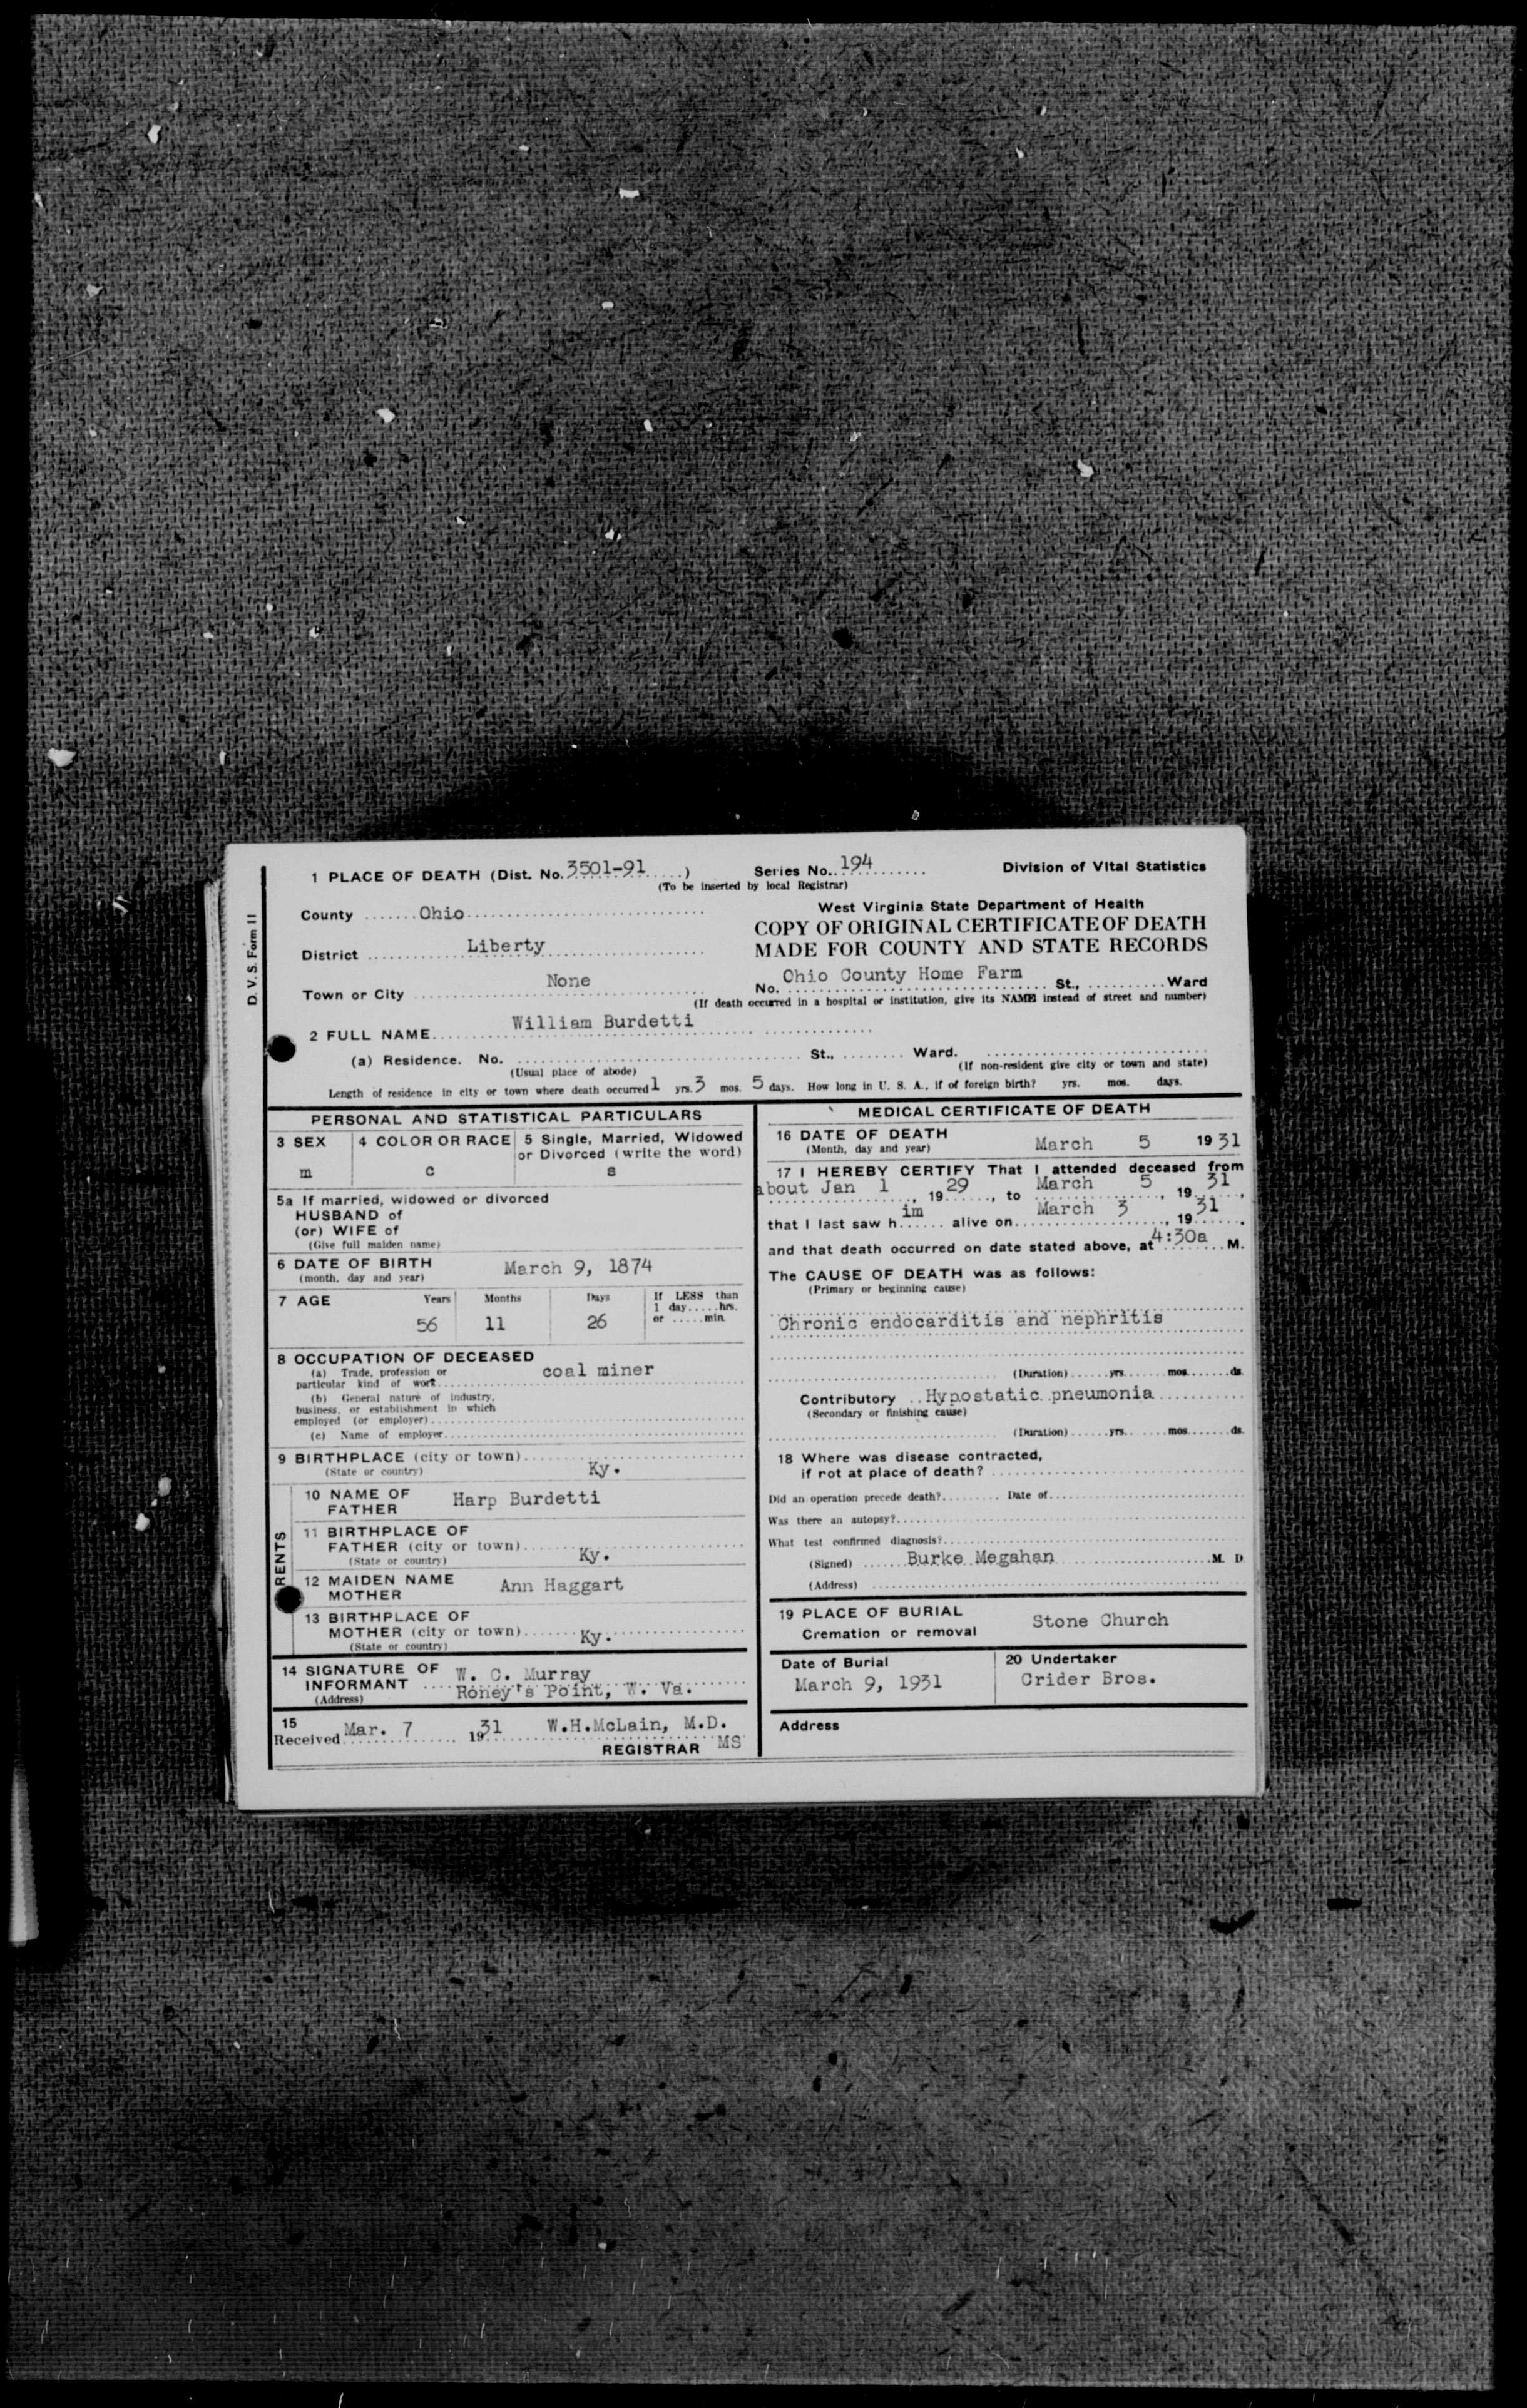 D. V. S. Form 11
1 PLACE OF DEATH (Dist. No. 3501-91 ) Series No. 194 Division of Vital Statistics
(To be inserted by local Registrar)
County Ohio West Virginia State Department of Health
COPY OF ORIGINAL CERTIFICATE OF DEATH
District Liberty MADE FOR COUNTY AND STATE RECORDS
Town or City None No. Ohio County Home Farm St., Ward
(If death occurred in a hospital or institution, give its NAME instead of street and number)
2 FULL NAME William Burdetti
(a) Residence. No. St., Ward.
(Usual place of abode) (If non-resident give city or town and state)
Length of residence in city or town where death occurred 1 yrs. 3 mos. 5 days. How long in U. S. A., if of foreign birth? yrs. mos. days.
PERSONAL AND STATISTICAL PARTICULARS
3 SEX 4 COLOR OR RACE 5 Single, Married, Widowed
or Divorced (write the word)
m c s
5a If married, widowed or divorced
HUSBAND of
(or) WIFE of
(Give full maiden name)
6 DATE OF BIRTH March 9, 1874
(month, day and year)
7 AGE Years Months Days If LESS than
1 day.....hrs.
56 11 26 or .....min.
8 OCCUPATION OF DECEASED
(a) Trade, profession or
particular kind of work coal miner
(b) General nature of industry,
business, or establishment in which
employed (or employer)
(c) Name of employer
9 BIRTHPLACE (city or town)
(State or country) Ky.
PARENTS
10 NAME OF
FATHER Harp Burdetti
11 BIRTHPLACE OF
FATHER (city or town)
(State or country) Ky.
12 MAIDEN NAME
MOTHER Ann Haggart
13 BIRTHPLACE OF
MOTHER (city or town)
(State or country) Ky.
14 SIGNATURE OF
INFORMANT W. C. Murray
(Address) Roney's Point, W. Va.
15
Received Mar. 7 1931 W.H.McLain, M.D.
REGISTRAR MS
MEDICAL CERTIFICATE OF DEATH
16 DATE OF DEATH
(Month, day and year) March 5 1931
17 I HEREBY CERTIFY That I attended deceased from
about Jan 1, 1929, to March 5, 1931,
that I last saw him alive on March 3, 1931.
and that death occurred on date stated above, at 4:30a M.
The CAUSE OF DEATH was as follows:
(Primary or beginning cause)
Chronic endocarditis and nephritis
(Duration) yrs. mos. ds.
Contributory Hypostatic pneumonia
(Secondary or finishing cause)
(Duration) yrs. mos. ds.
18 Where was disease contracted,
if not at place of death?
Did an operation precede death? Date of
Was there an autopsy?
What test confirmed diagnosis?
(Signed) Burke Megahan M. D
(Address)
19 PLACE OF BURIAL
Cremation or removal Stone Church
Date of Burial
March 9, 1931
20 Undertaker
Crider Bros.
Address